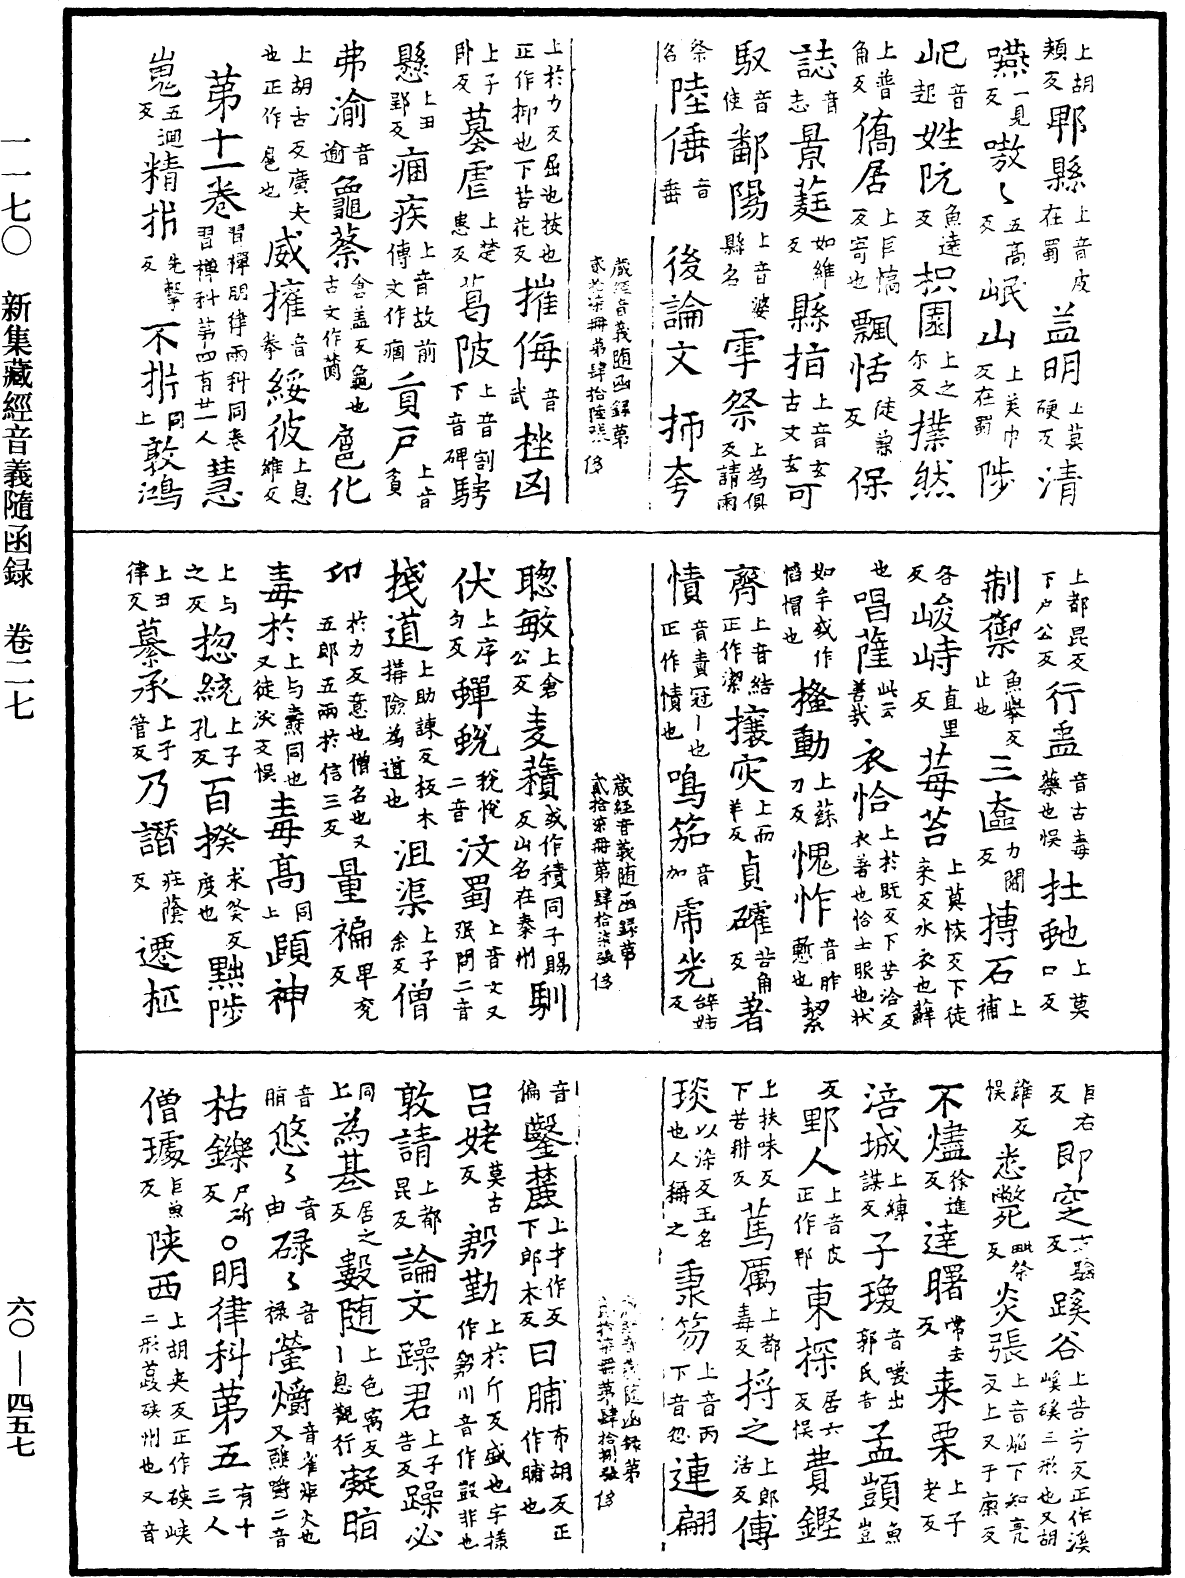 一一七〇　新集藏經音義隨函録　卷二七
六〇—四五七
上胡頰反郫縣上音皮在蜀益明上莫硬反清
嚥一見反嗷〻五高反岷山上美巾反在蜀陟
屺音起姓阮魚遠反枳園上之尔反㩧然
上普角反僑居上巨憍反寄也飄恬徒兼反保
誌音志景蕤如維反縣㨖上音玄古文玄可
馭音使鄱陽上音婆縣名雩祭上為俱反請雨
祭名陸倕音垂　後論文　抪夸
藏經音義随函録第貳拾柒冊第肆拾陸張　俢
上於力反屈也按也正作抑也下苦花反摧侮音武挫凶
上子卧反蔂虐上楚患反葛陂上音割下音碑騁
懸上丑郢反痼疾上音故前傳文作痼負戶上音負
弗渝音逾龜蔡倉盖反龜也古文作𦵩扈化
上胡古反廣大也正作扈也威㩲音拳綏彼上息維反
苐十一卷習禪明律兩科同卷習禅科苐四有廿一人慧
嵬五迴反精㧗先擊反不㧗同上敦鴻
上都昆反下户公反行蛊音古毒藥也悞杜虵上莫口反
制禦魚舉反止也三匳力閻反摶石上補
各反峻峙直里反莓苔上莫恢反下徒來反水衣也蘚
也唱薩此云善哉衣恰上於既反下苦洽反衣著也恰士服也状
如弁或作㡊帽也搔動上蘇刀反愧怍音昨慙也絜
齊上音结正作潔攘灾上而羊反貞確苦角反著
幘音責冠〡也正作幘也鳴笳音加席光
藏經音義随函録第貳拾柒冊第肆拾柒張　俢
聦敏上倉公反麦積或作積同子賜反山名在秦州馴
伏上序匀反蟬蜕税悦二音汶蜀上音文又珉問二音
㦃道上助諫反板木搆險為道也沮渠上子余反僧
印於力反意也僧名也又五郎五兩於信三反量褊卑兖反
毒於上与纛同也又徒沃反悞毒高同上顗神
上与之反揔統上子孔反百揆求癸反度也黜陟
上丑律反纂承上子管反乃譖庄蔭反遷柩
巨右反即窆方驗反蹊谷上苦兮反正作溪嵠磎三形也又胡
雞反悞悉斃毗祭反炎張上音焰下知亮反上又于廉反
不燼徐進反達曙常去反棗栗上子老反
涪城上縛謀反子瓊音嚶出郭氏音孟顗魚豈
反郢人上音皮正作郫東探居六反悞費鏗
上扶味反下苦耕反萬厲上都毒反捋之上郎活反傅
琰以染反玉名也人稱之秉笏上音丙下音忽連翩
貳拾柒冊第肆拾捌張　俢
音偏鑿麓上才作反下郎木反日脯布胡反正作晡也
吕姥莫古反㔟勤上於斤反盛也字樣作㔟川音作㲈非也
敦請上都昆反論文　躁君上子告反躁必
同上為基居之反數随上色寡反〡息觀行凝㫪
音脗悠〻音由碌〻音禄螢爝音雀炬火也又醮爵二音
枯鑠尸斫反○明律科第五有十三人
僧璩巨魚反陕西上胡夹反正作硖峡二形䓊硖州也又音